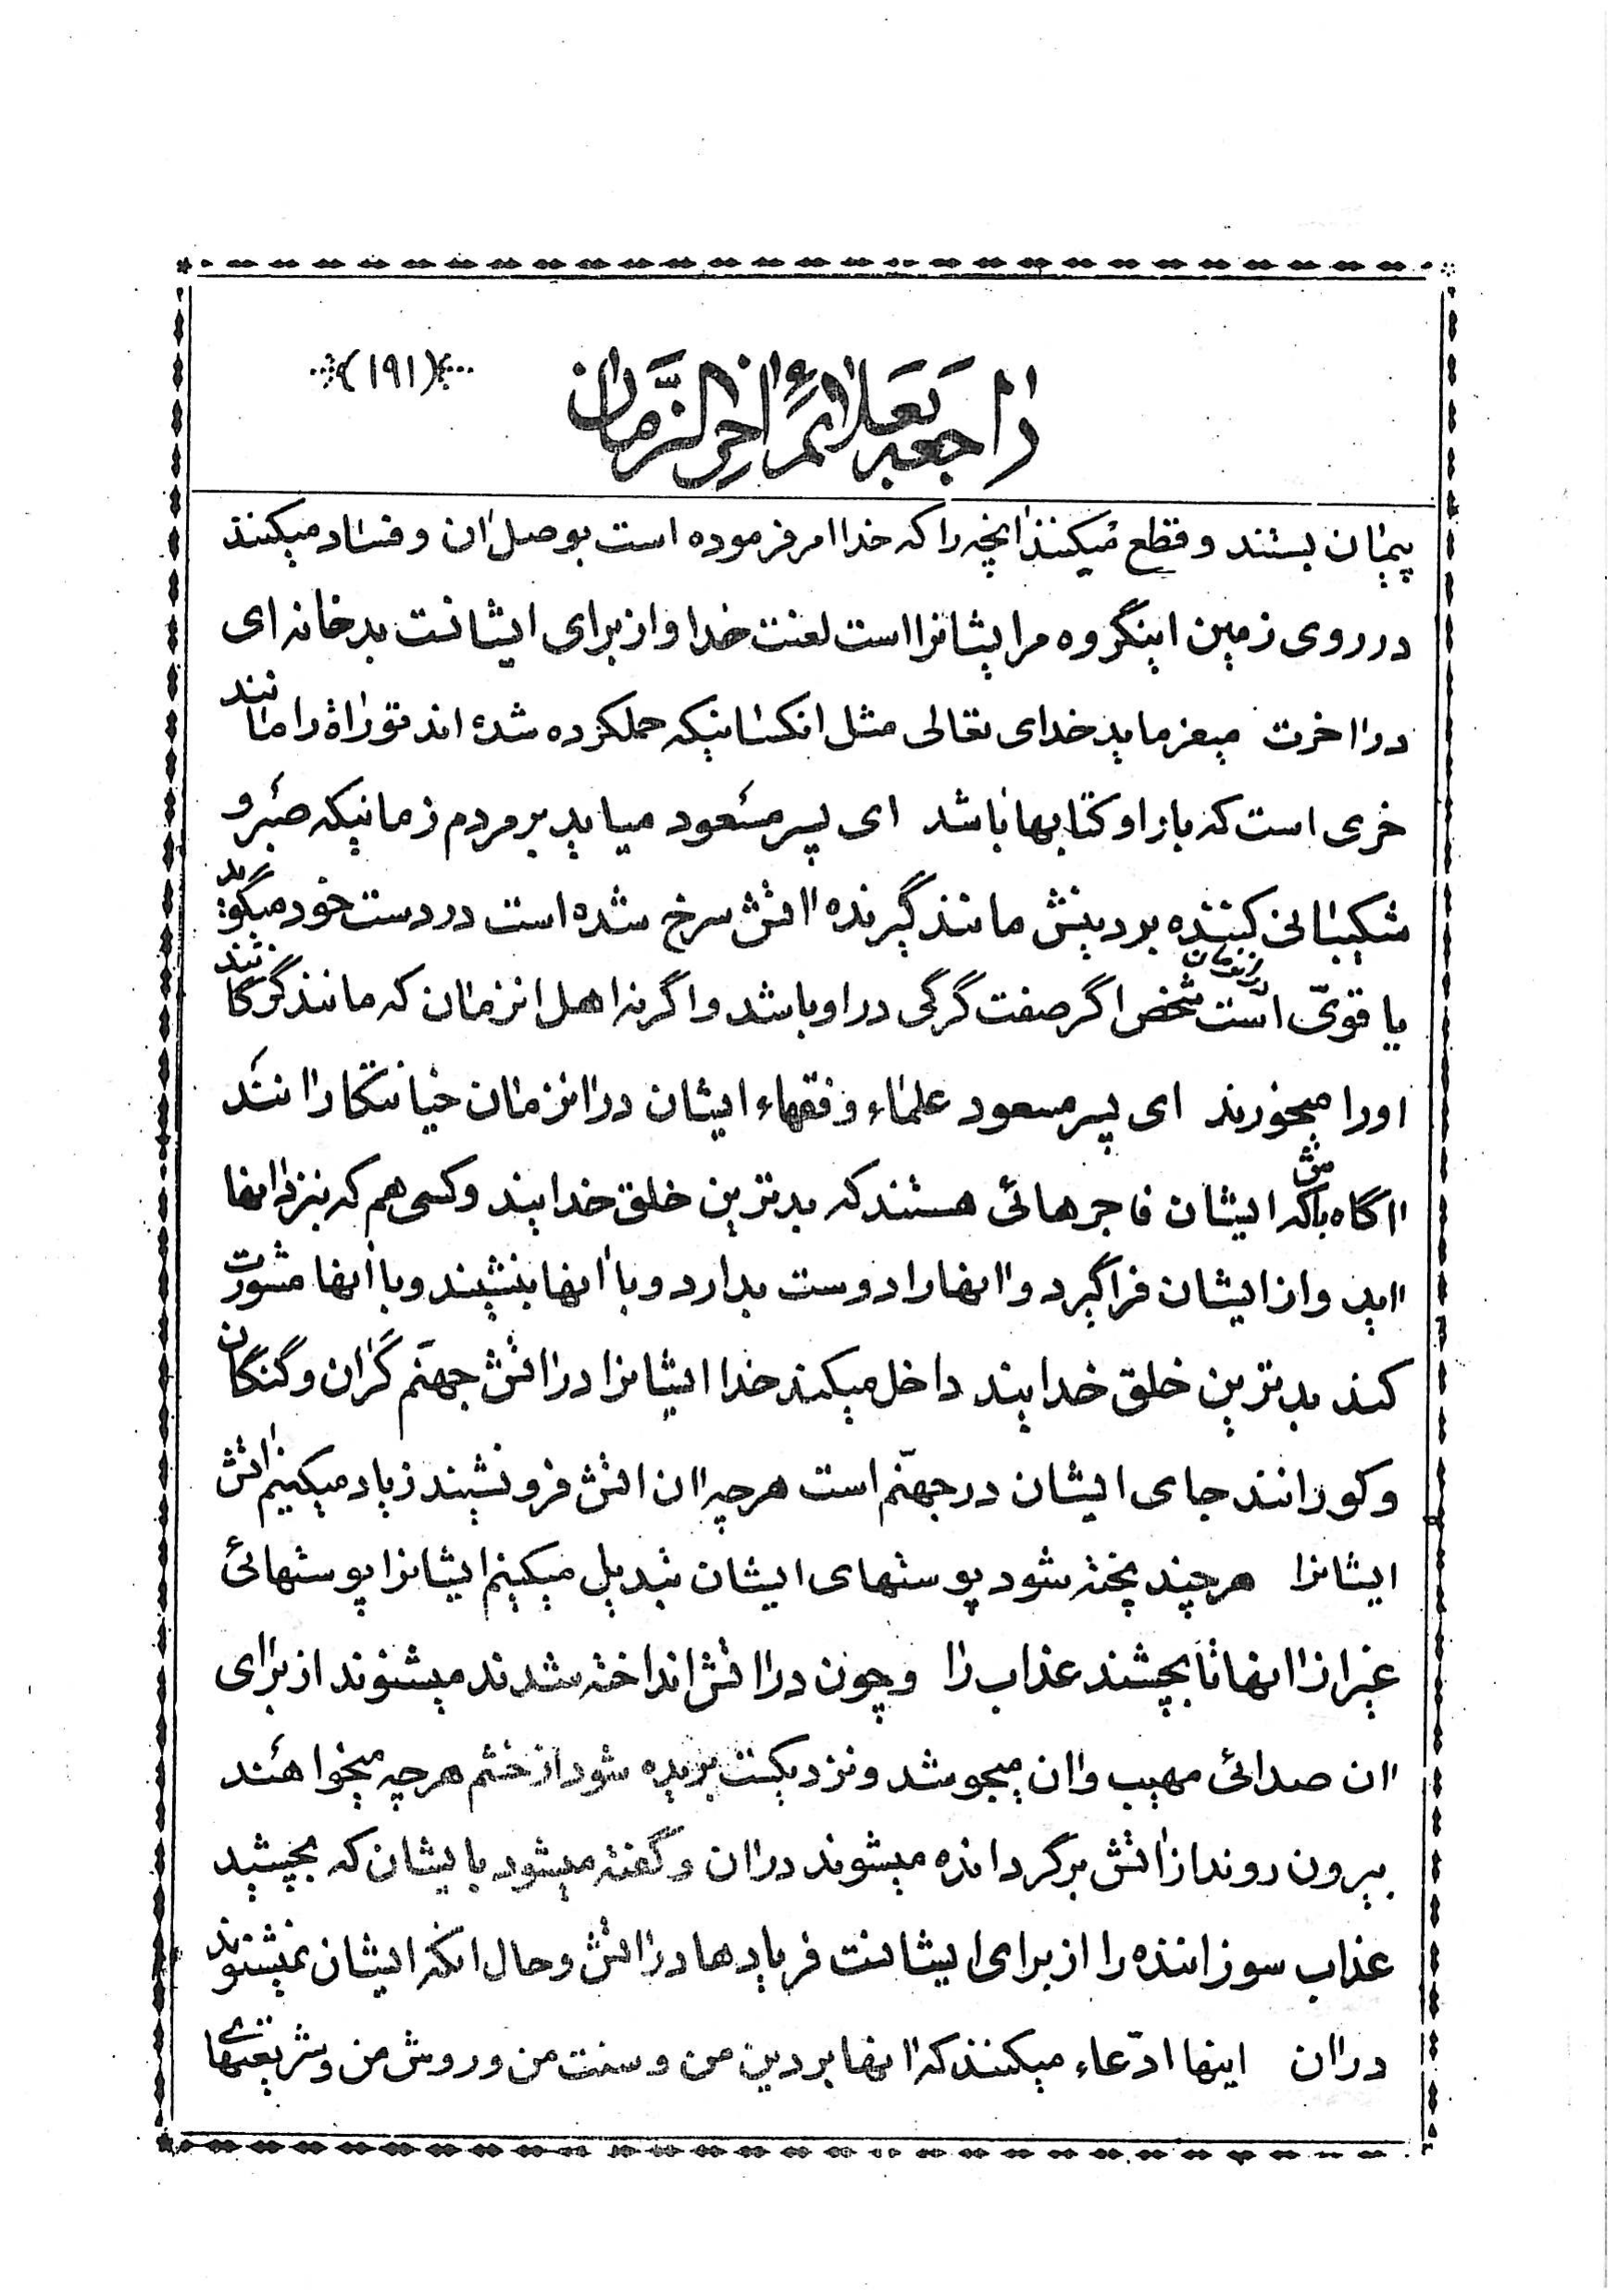 (۱۹۱)
راجعه بعلائم آخر الزّمان
پیمان بستند و قطع میکنند آنچه را که خدا امر فرموده است بوصل آن و فساد میکنند
در روی زمین اینگروه مر ایشانرا است لعنت خدا و از برای ایشانست بد خانه ای
در آخرت میفرماید خدای تعالی مثل آنکسانیکه حملکرده شده اند توراة را مانند
خری است که بار او کتابها باشد ای پسر مسعود میاید بر مردم زمانیکه صبر و
شکیبائی کننده بر دینش مانند گیرنده آتش سرخ شده است در دست خود میگوید
یا قویّ است در آنزمان شخص اگر صفت گرگی در او باشد و اگر نه اهل آنزمان که مانند گرگانند
او را میخورند ای پسر مسعود علماء و فقهاء ایشان در آنزمان خیانتکارانند
آگاه باش که ایشان فاجرهائی هستند که بدترین خلق خدایند و کسی هم که بنزد آنها
آید و از ایشان فراگیرد و آنها را دوست بدارد و با آنها بنشیند و با آنها مشورت
کند بدترین خلق خدایند داخل میکند خدا ایشانرا در آتش جهنّم کران و گنگان
و کورانند جای ایشان در جهنّم است هر چه آن آتش فرو نشیند زیاد میکنیم آتش
ایشانرا هر چند پخته شود پوستهای ایشان تبدیل میکنیم ایشانرا پوستهائی
غیر از آنها تا بچشند عذاب را و چون در آتش انداخته شدند میشنوند از برای
آن صدائی مهیب و آن میجوشد و نزدیکست بریده شود از خشم هر چه میخواهند
بیرون روند از آتش برگردانده میشوند در آن و گفته میشود بایشان که بچشید
عذاب سوزاننده را از برای ایشانست فریادها در آتش و حال آنکه ایشان نمیشنوند
در آن اینها ادّعاء میکنند که آنها بر دین من و سنت من و روش من و شریعتهای